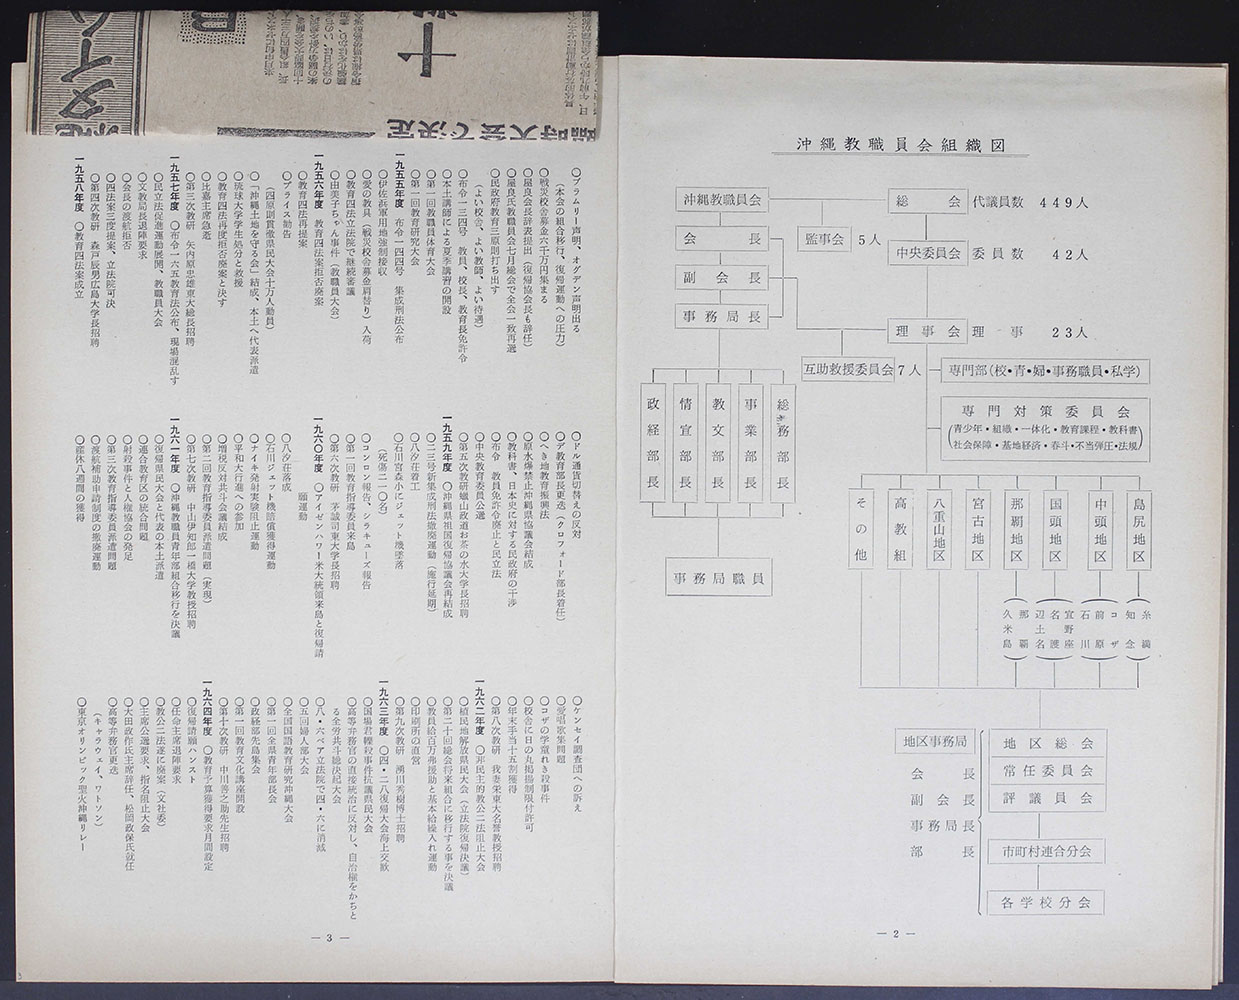 沖縄教職員会組織図
沖縄教職員会
会長
副会長
事務局長
監事会 5人
総会 代議員数 449人
中央委員会 委員数 42人
理事会 理事 23人
互助救援委員会 7人
専門部(校・青・婦・事務職員・私学)
専門対策委員会
(青少年・組織・一体化・教育課程・教科書
社会保障・基地経済・春斗・不当弾圧・法規)
総務部長
事業部長
教文部長
情宣部長
政経部長
事務局職員
島尻地区
中頭地区
国頭地区
那覇地区
宮古地区
八重山地区
高教組
その他
糸満
知念
コザ
前原
石川
宜野座
名護
辺土名
那覇
久米島
地区事務局
会長
副会長
事務局長
部長
地区総会
常任委員会
評議員会
市町村連合分会
各学校分会
— 2 —
臨時大会で決定
○ブラムリー声明、オグデン声明出る
(本会の組合移行、復帰運動への圧力)
○戦災校舎募金六千万円集まる
○屋良会長辞表提出(復帰協会長も辞任)
○屋良氏教職員会七月総会で全会一致再選
○民政府教育三原則打ち出す
(よい校舎、よい教師、よい待遇)
○布令一三四号 教員、校長、教育長免許令
○本土講師による夏季講習の開設
○第一回教職員体育大会
○第一回教育研究大会
一九五五年度 布令一四四号 集成刑法公布
○伊佐浜軍用地強制接収
○愛の教具(戦災校舎募金肩替り)入荷
○教育四法立法院で継続審議
○由美子ちゃん事件(教職員大会)
一九五六年度 教育四法案拒否廃案
○教育四法再提案
○プライス勧告
(四原則貫徹県民大会十万人動員)
○「沖縄土地を守る会」結成、本土へ代表派遣
○琉球大学学生処分と救援
○教育四法再度拒否廃案と決す
○比嘉主席急逝
○第三次教研 矢内原忠雄東大総長招聘
一九五七年度 ○布令一六五教育法公布、現場混乱す
○民立法促進運動展開、教職員大会
○文教局長退陣要求
○会長の渡航拒否
○四法案三度提案、立法院可決
○第四次教研 森戸辰男広島大学長招聘
一九五八年度 ○教育四法案成立
○ドル通貨切替えの反対
○デ教育部長更迭(クロフォード部長着任)
○へき地教育振興法
○原水爆禁止沖縄県協議会結成
○教科書、日本史に対する民政府の干渉
○布令 教員免許令廃止と民立法
○中央教育委員公選
○第五次教研蠟山政道お茶の水大学長招聘
一九五九年度 ○沖縄県祖国復帰協議会再結成
○二三号新集成刑法撤廃運動(施行延期)
○八汐荘着工
○石川宮森小にジェット機墜落
(死傷二一〇名)
○コンロン報告、シラキューズ報告
○第一回教育指導委員来島
○第六次教研 茅誠司東大学長招聘
一九六〇年度 ○アイゼンハワー米大統領来島と復帰請
願運動
○八汐荘落成
○石川ジェット機賠償獲得運動
○ナイキ発射実験阻止運動
○平和大行進への参加
○増税反対共斗会議結成
○第二回教育指導委員派遣問題(実現)
○第七次教研 中山伊知郎一橋大学教授招聘
一九六一年度 ○沖縄教職員青年部組合移行を決議
○復帰県民大会と代表の本土派遣
○連合教育区の統合問題
○射殺事件と人権協会の発足
○第三次教育指導委員派遣問題
○渡航補助申請制度の撤廃運動
○産休八週間の獲得
○ケンセイ調査団への訴え
○愛唱歌集問題
○コザの学童れき殺事件
○校舎に日の丸掲揚制限付許可
○年末手当十五割獲得
○第八次教研 我妻栄東大名誉教授招聘
一九六二年度 ○非民主的教公二法阻止大会
○植民地解放県民大会(立法院復帰決議)
○第二十回総会将来組合に移行する事を決議
○教員給百万弗援助と基本給繰入れ運動
○印刷所の直営
○第九次教研 湯川秀樹博士招聘
一九六三年度 ○四・二八復帰大会海上交歓
○国場君轢殺事件抗議県民大会
○高等弁務官の直接統治に反対し、自治権をかちと
る全労共斗総決起大会
○八・六ベア立法院で四・六に消滅
○五回婦人部大会
○全国国語教育研究沖縄大会
○第一回全県青年部長会
○政経部先島集会
○第一回教育文化講座開設
○第十次教研 中川善之助先生招聘
一九六四年度 ○教育予算獲得要求月間設定
○復帰請願ハンスト
○任命主席退陣要求
○教公二法遂に廃案(文社委)
○主席公選要求、指名阻止大会
○大田政作氏主席辞任、松岡政保氏就任
○高等弁務官更迭
(キャラウェイ、ワトソン)
○東京オリンピック聖火沖縄リレー
— 3 —